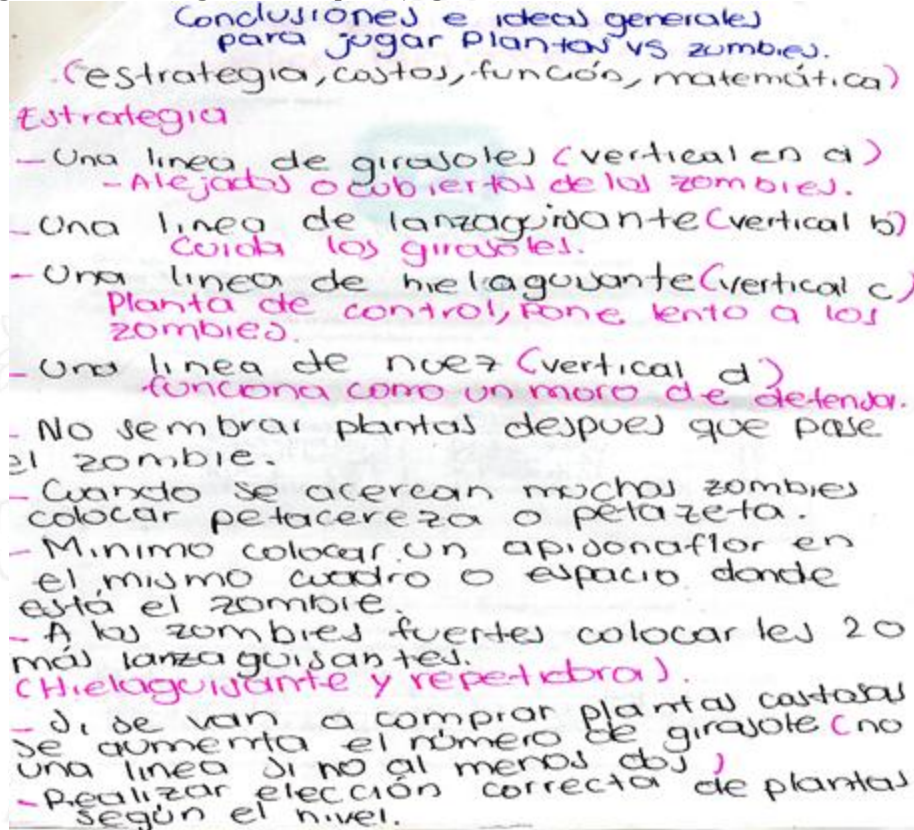 Conclusiones e ideas generales
para jugar Plantas vs zombies.
(estrategia, costos, función, matemática)
Estrategia
- Una linea de girasoles (vertical en a)
- Alejados o cubiertos de los zombies.
- Una linea de lanzaguisante (vertical b)
Cuida los girasoles.
- Una linea de hielaguisante (vertical c)
Planta de control, pone lento a los
zombies.
- Una linea de nuez (vertical d)
funciona como un muro de defensa.
- No sembrar plantas despues que pase
el zombie.
- Cuando se acercan muchos zombies
colocar petacereza o petazeta.
- Minimo colocar un apisonaflor en
el mismo cuadro o espacio donde
está el zombie.
- A los zombies fuertes colocarles 2 o
más lanzaguisantes.
(Hielaguisante y repetidora).
- Si se van a comprar plantas costosas
se aumenta el número de girasole (no
una linea si no al menos dos)
- Realizar elección correcta de plantas
según el nivel.